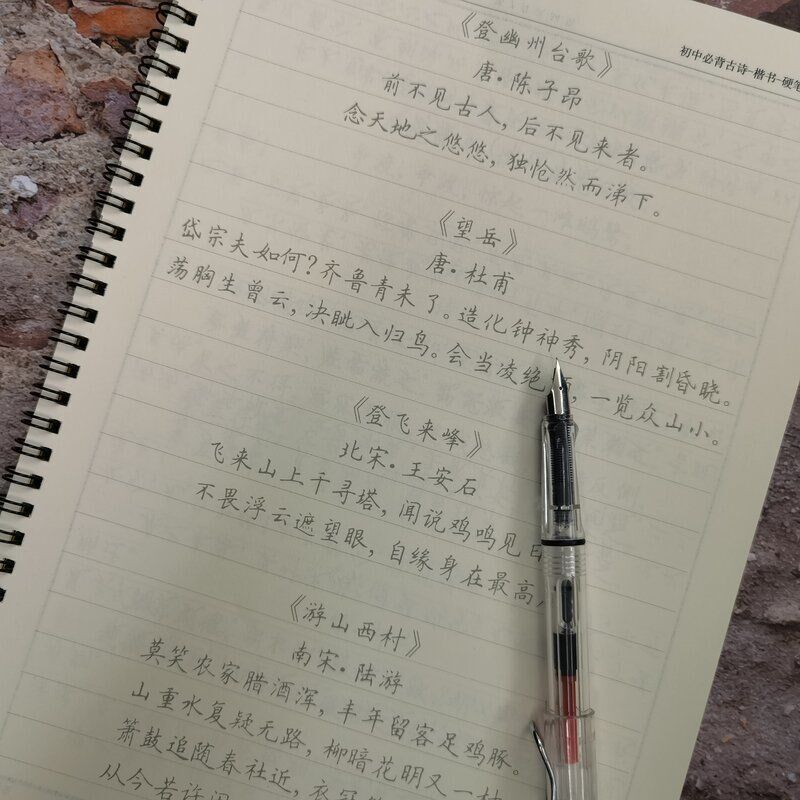 初中必背古诗-楷书-硬笔
《登幽州台歌》
唐·陈子昂
前不见古人，后不见来者。
念天地之悠悠，独怆然而涕下。
《望岳》
唐·杜甫
岱宗夫如何？齐鲁青未了。造化钟神秀，阴阳割昏晓。
荡胸生曾云，决眦入归鸟。会当凌绝，一览众山小。
《登飞来峰》
北宋·王安石
飞来山上千寻塔，闻说鸡鸣见日
不畏浮云遮望眼，自缘身在最高
《游山西村》
南宋·陆游
莫笑农家腊酒浑，丰年留客足鸡豚。
山重水复疑无路，柳暗花明又一村
箫鼓追随春社近，衣冠
从今若许闲